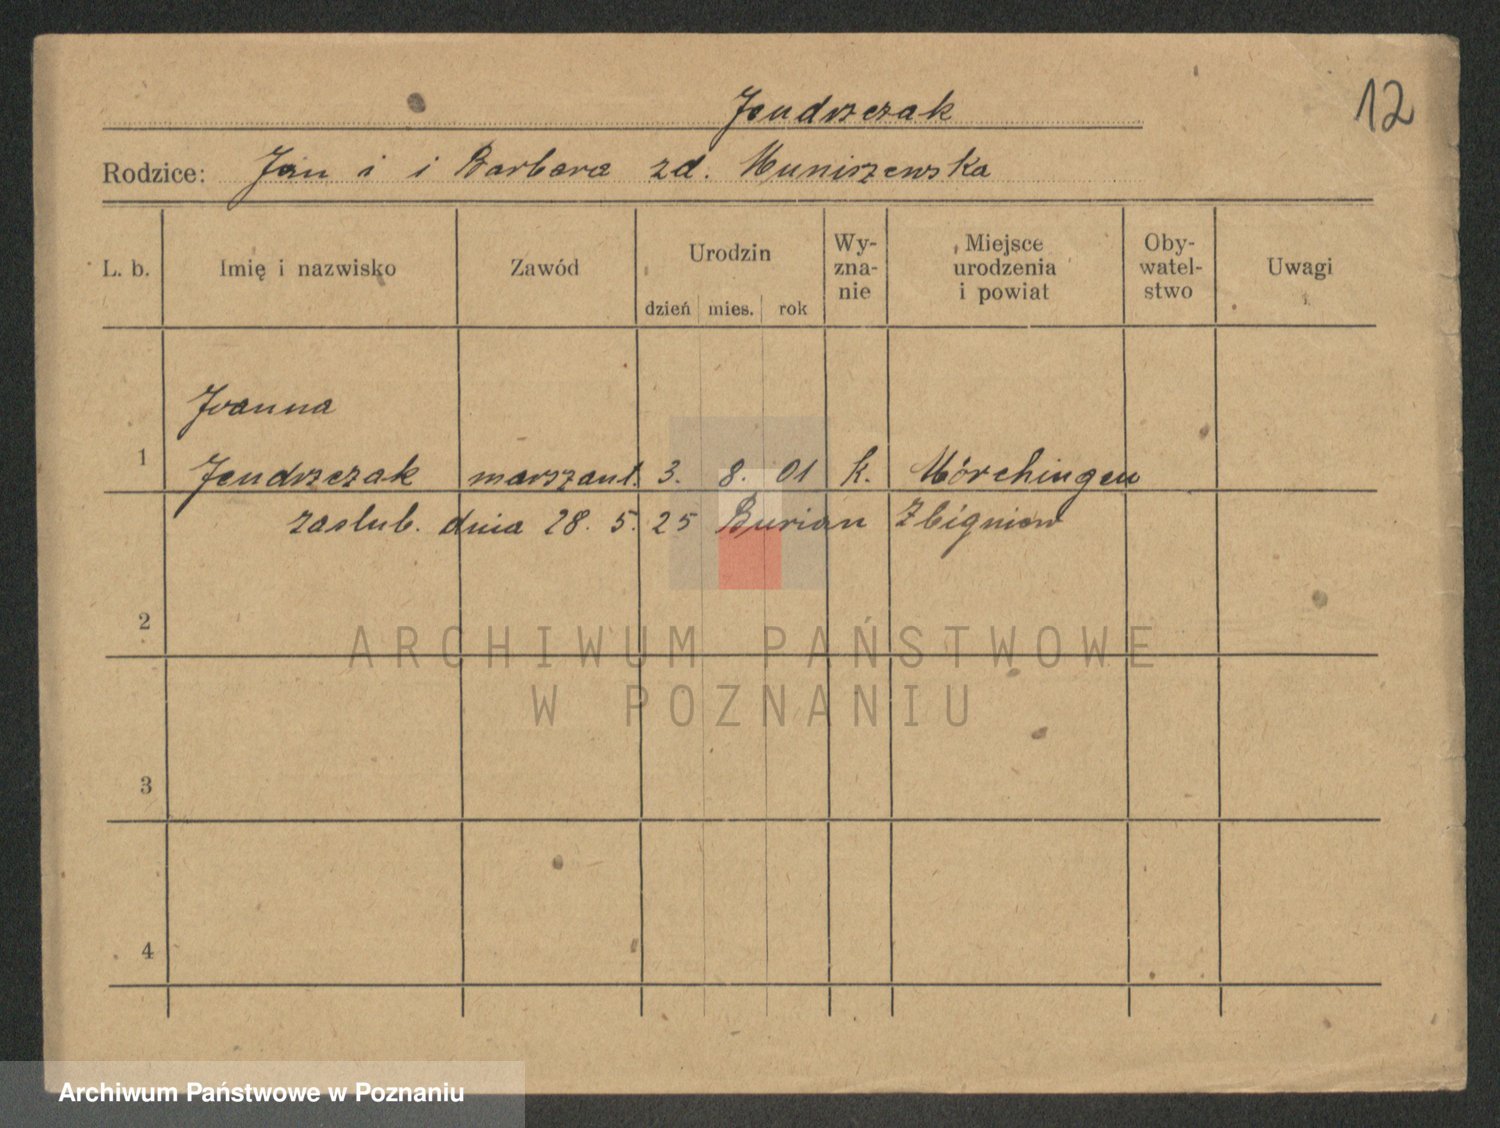 12
Jendrzczak
Rodzice: Jan i i Barbara zd. Muniszewska
L. b. Imię i nazwisko Zawód Urodzin dzień mies. rok Wy-zna-nie Miejsce urodzenia i powiat Oby-watel-stwo Uwagi
Joanna
1 Jendrzczak marszant. 3. 8. 01 k. Mörchingen
zaslub. dnia 28. 5. 25 Burian Zbigniew
2
ARCHIWUM PAŃSTWOWE
W POZNANIU
3
4
Archiwum Państwowe w Poznaniu